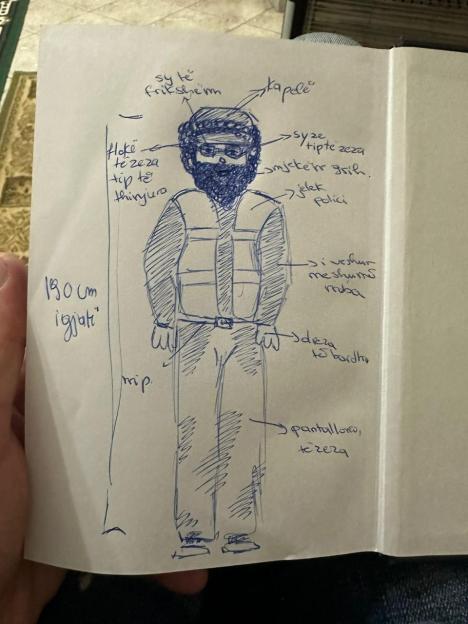 sy të
frikshëm
kapelë
flokë
të zeza
tip të
thinjura
syze
tip të zeza
mjekërr
jelek
polici
i veshur
me shumë
rroba
190 cm
i gjatë
rrip.
duar
të bardha
pantallona
të zeza